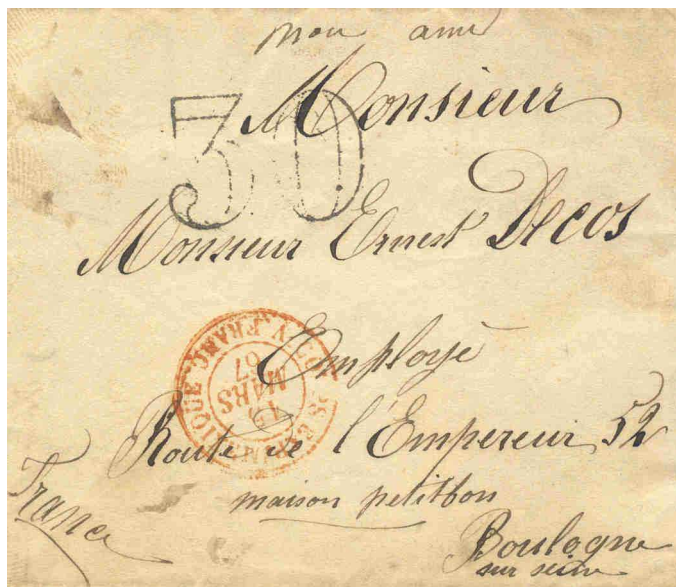 mon ami
Monsieur
30
Monsieur Ernest Decos
Employé
MARS
67
Route de l'Empereur 52
maison petitbon
France
Boulogne
sur seine